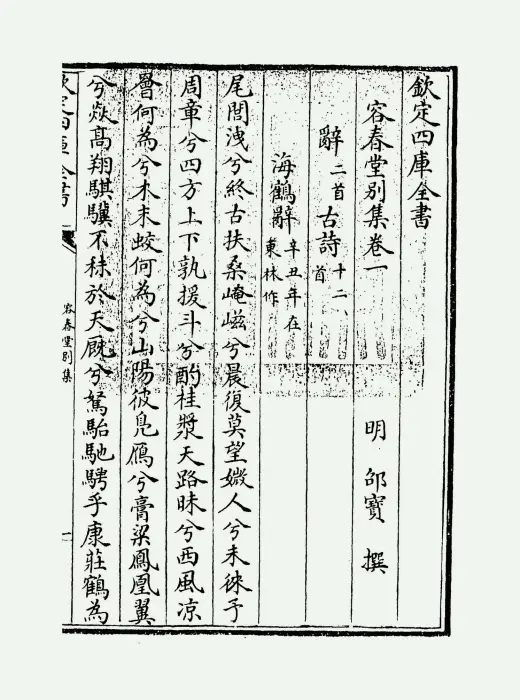 欽定四庫全書
容春堂別集卷一
明 邵寶 撰
辭二首 古詩十二首
海鶴辭辛丑年在東林作
尾閭洩兮終古扶桑崦嵫兮晨復莫望媺人兮未徠予
周章兮四方上下孰援斗兮酌桂漿天路昧兮西風凉
罾何為兮木末蛟何為兮山陽彼鳧鴈兮膏粱鳳凰翼
兮焱高翔騏驥不秣於天厩兮駑駘馳騁乎康莊鶴為
欽定四庫全書
容春堂別集
一